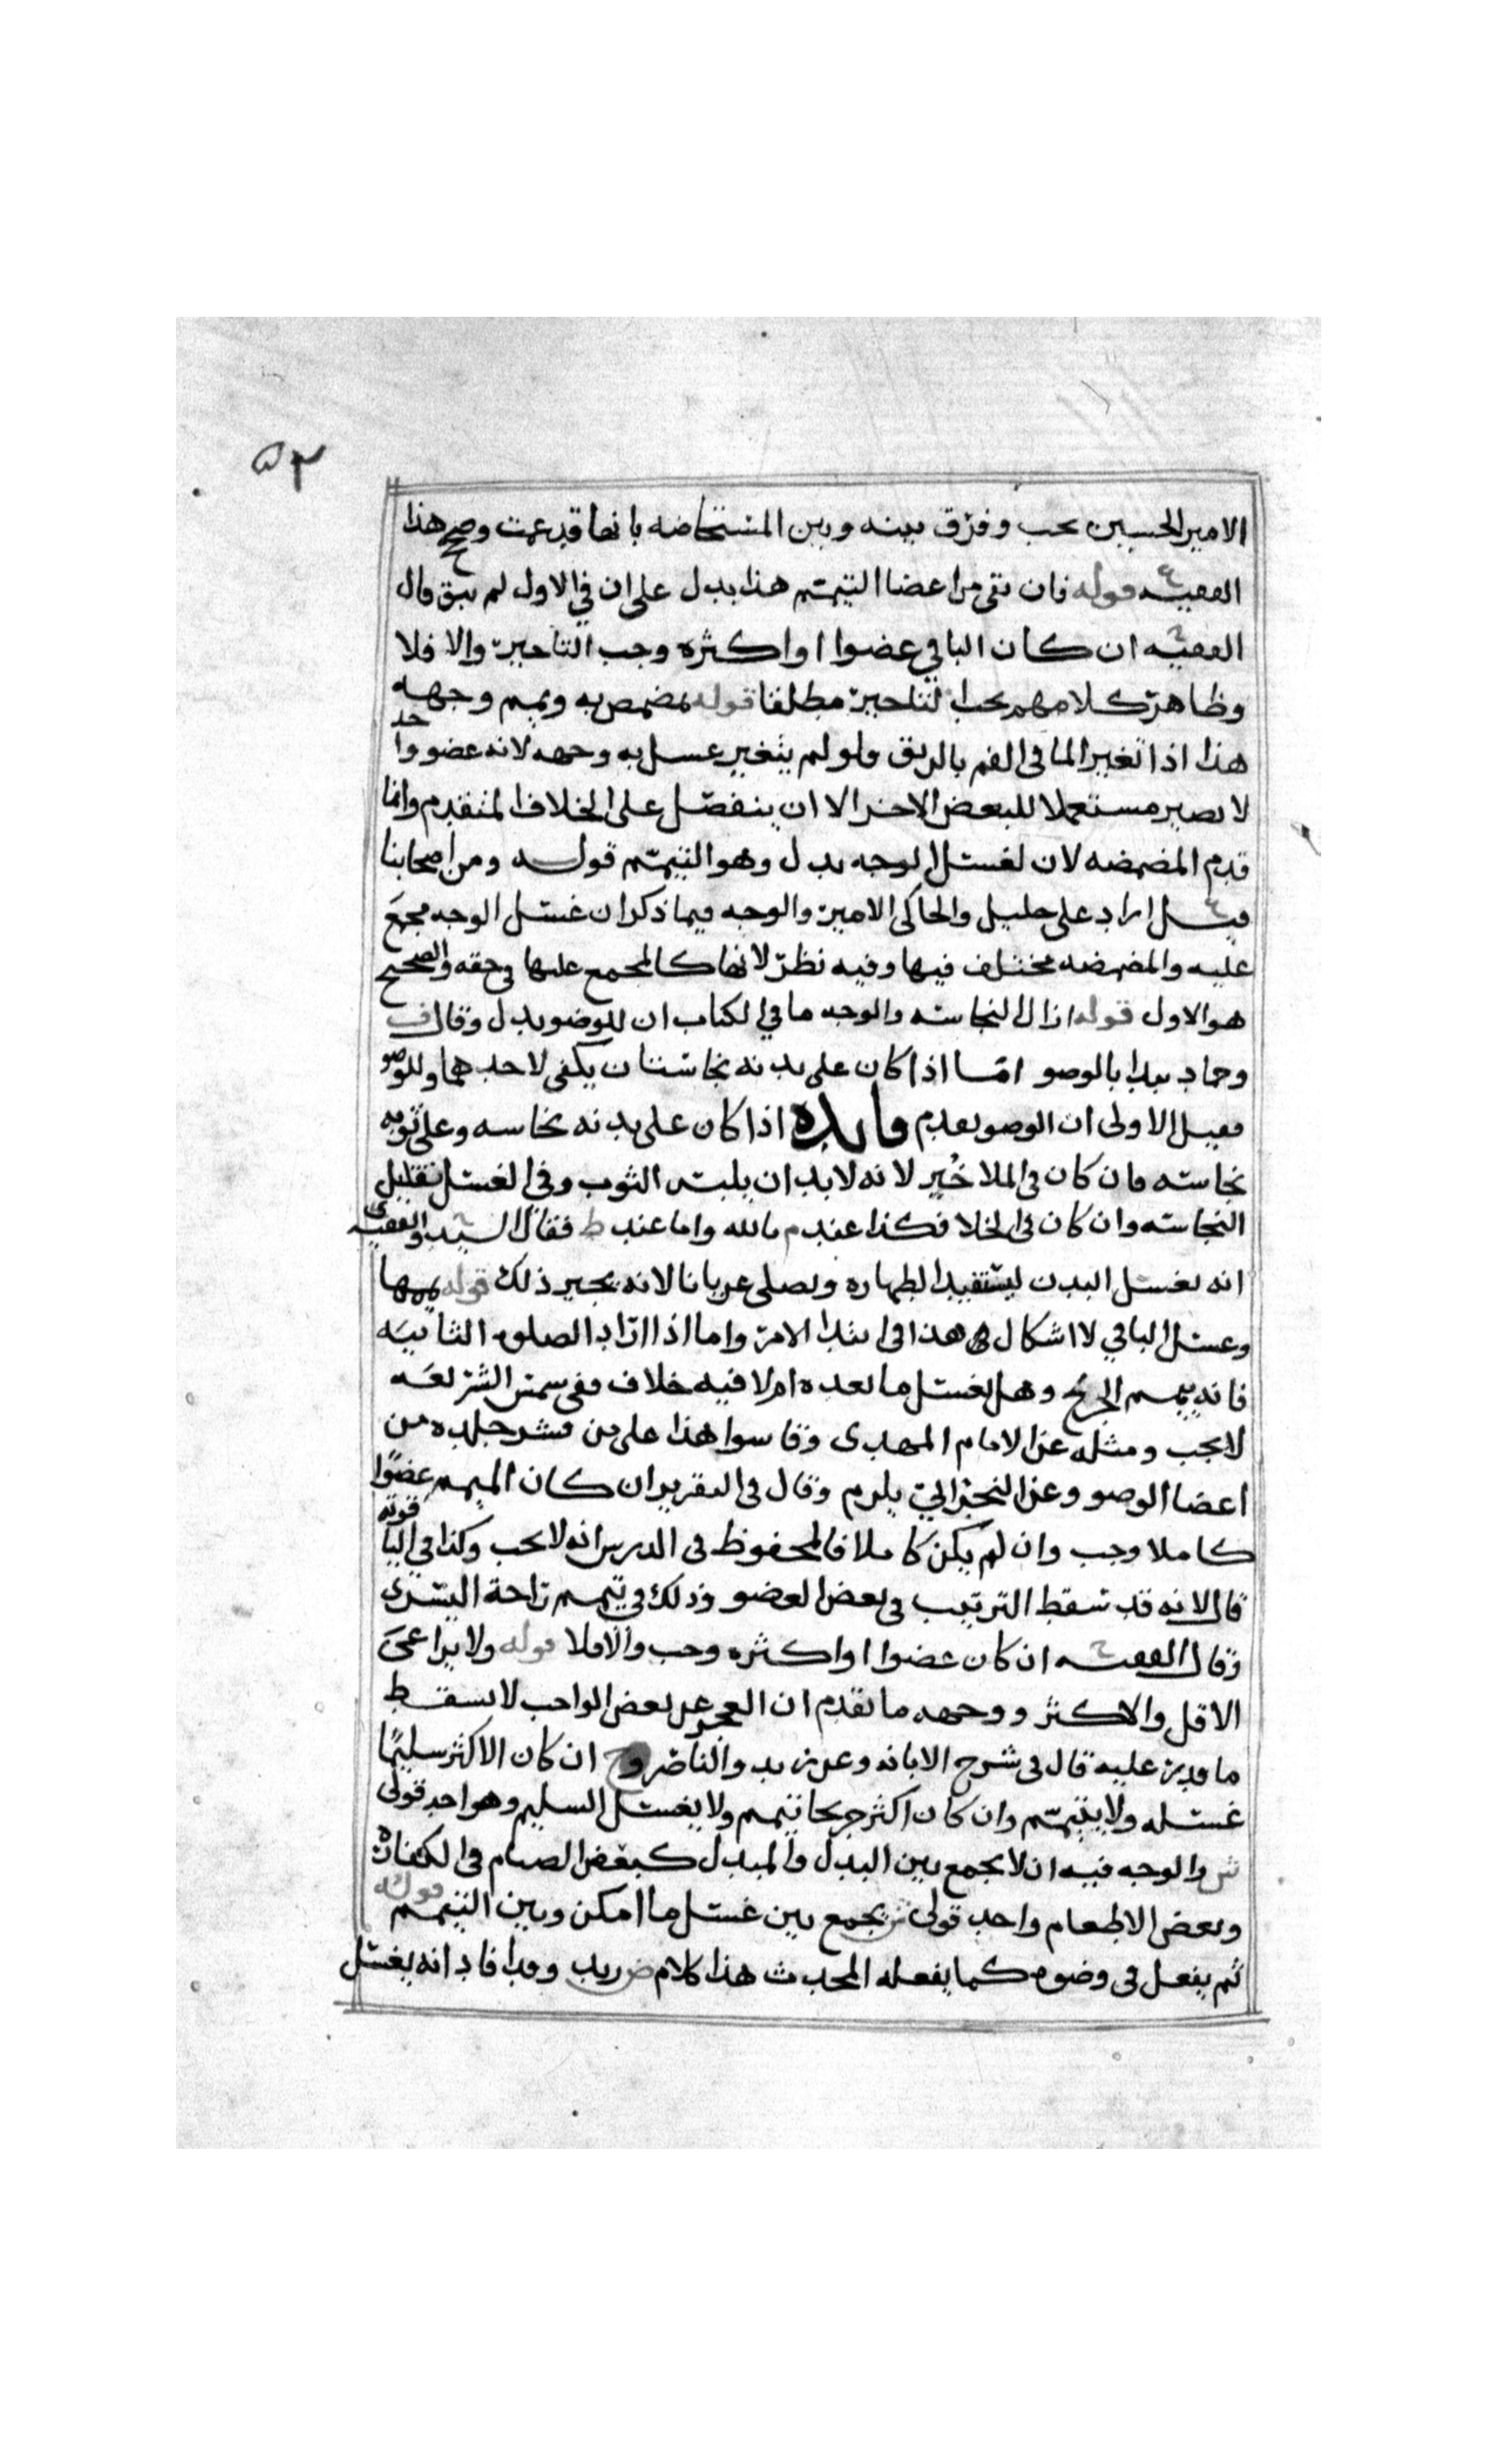 ٥٣
الامير الحسين يحب وفرق بينه وبين المستحاضه بانها قد عمت وصح هذا
الفقيه قوله فان بقي من اعضا التيمم هذا يدل على ان في الاول لم يبق قال
الفقيه ان كان الباقي عضوا او اكثره وجب التاخير والا فلا
وظاهر كلامهم يجب التاخير مطلقا قوله مضمض به ويمم وجهه
هذا اذا تغير الما في الفم بالريق ولو لم يتغير غسل به وجهه لانه عضو واحد
لا يصير مستعملا للبعض الاخر الا ان ينفصل على الخلاف المتقدم وانما
قدم المضمضه لان لغسل الوجه بدل وهو التيمم قوله ومن اصحابنا
قيل اراد علي خليل والحاكي الامير والوجه فيما ذكر ان غسل الوجه مجمع
عليه والمضمضه مختلف فيها وفيه نظر لانها كالمجمع عليها في حقه والصحيح
هو الاول قوله ازال النجاسه والوجه ما في الكتاب ان للوضو بدل وقال ف
وحماد يبدا بالوضو امـا اذا كان على بدنه نجاستان يكفي لاحدهما وللوضو
فقيل الاولى ان الوضو يقدم فايده اذا كان على بدنه نجاسه وعلى ثوبه
نجاسه فان كان في الملا خُير لانه لا بد ان يلبس الثوب وفي الغسل تقليل
النجاسه وان كان في الخلا فكذا عند م بالله واما عند ط فقال السيد والفقيه
انه يغسل البدن ليستفيد الطهاره ويصلي عريانا لانه يجيز ذلك قوله يممها
وغسل الباقي لا اشكال في هذا في ابتدا الامر واما اذا اراد الصلوه الثانيه
فانه ييمم الجريح وهل يغسل ما بعده ام لا فيه خلاف ففي سمس الشريعه
لا يجب ومثله عن الامام المهدي وقاسوا هذا على من قشر جلده من
اعضا الوضو وعن النجراني يلزم وقال في التقرير ان كان الميمم عضوًا
كاملا وجب وان لم يكن كاملا فالمحفوظ في الدرس انه لا يجب وكذا في الياقوته
قال لانه قد سقط الترتيب في بعض العضو وذلك في تيمم راحة اليسرى
وقال الفقيه ان كان عضوا او اكثره وجب والا فلا قوله ولا يراعى
الاقل والاكثر ووجهه ما تقدم ان العجز عن بعض الواجب لا يسقط
ما قدر عليه قال في شرح الابانه وعن زيد والناصر وح ان كان الاكثر سليمًا
غسله ولا يتيمم وان كان اكثر جريحا تيمم ولا يغسل السليم وهو احد قولي
ش والوجه فيه ان لا يجمع بين البدل والمبدل كبعض الصيام في الكفاره
وبعض الاطعام واحد قولي ش يجمع بين غسل ما امكن وبين التيمم قوله
ثم يفعل في وضوه كما يفعله المحدث هذا كلام ض زيد وقد افاد انه يغسل